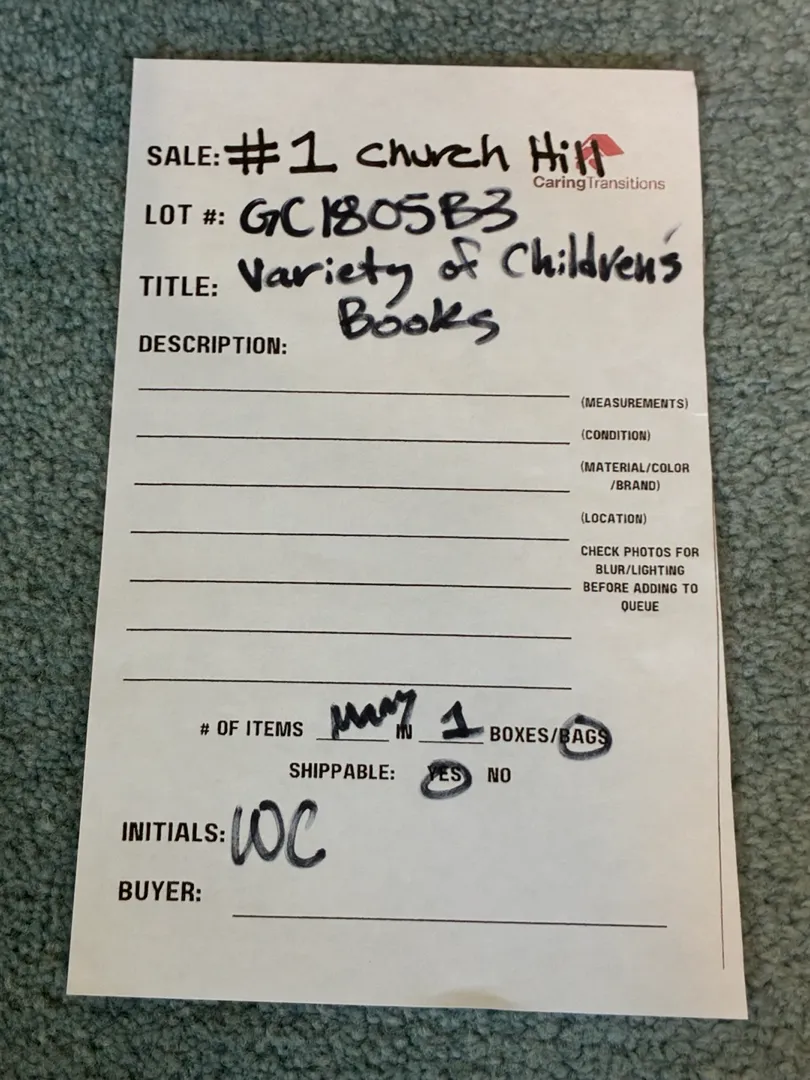 SALE: #1 Church Hill
CaringTransitions
LOT #: GC1805B3
TITLE: Variety of Children's
Books
DESCRIPTION:
(MEASUREMENTS)
(CONDITION)
(MATERIAL/COLOR
/BRAND)
(LOCATION)
CHECK PHOTOS FOR
BLUR/LIGHTING
BEFORE ADDING TO
QUEUE
# OF ITEMS Many IN 1 BOXES/BAGS
SHIPPABLE: YES NO
INITIALS: WC
BUYER: